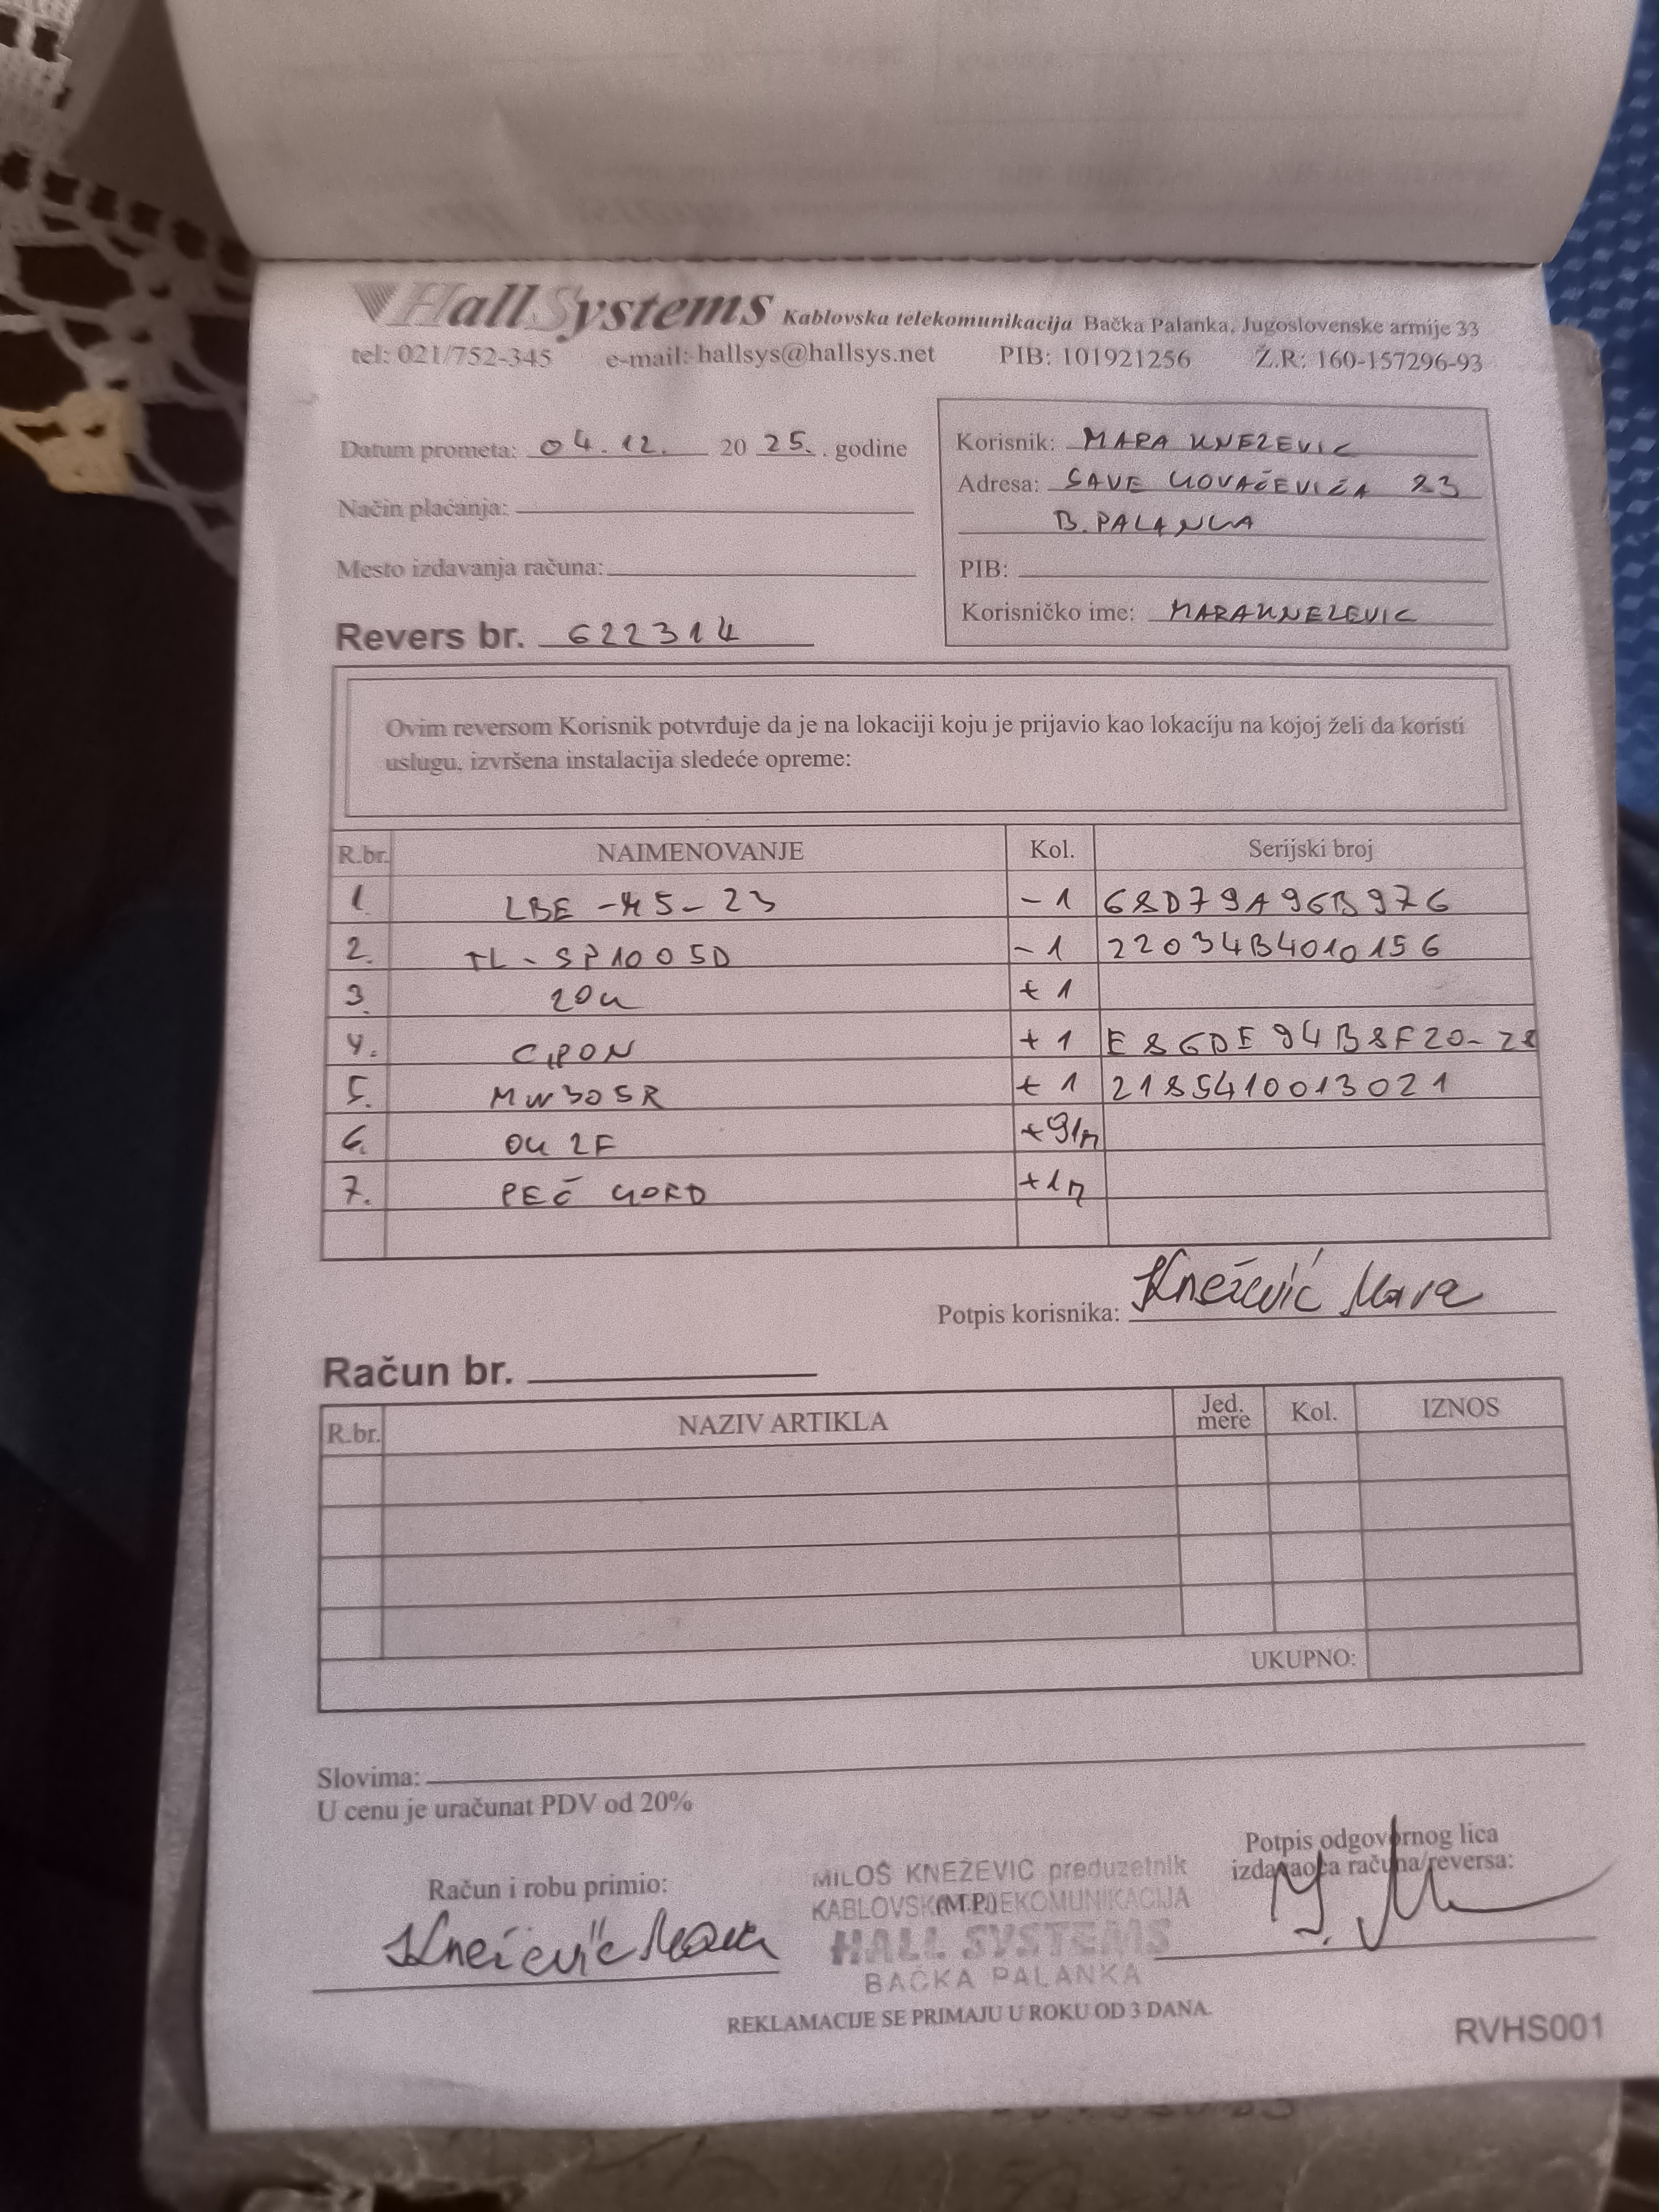 HallSystems Kablovska telekomunikacija Bačka Palanka, Jugoslovenske armije 33
tel: 021/752-345 e-mail: hallsys@hallsys.net PIB: 101921256 Ž.R: 160-157296-93
Datum prometa: 04.12. 2025. godine
Način plaćanja:
Mesto izdavanja računa:
Revers br. 622314
Korisnik: MARA KNEZEVIC
Adresa: SAVE KOVAČEVIĆA 23
B. PALANKA
PIB:
Korisničko ime: MARAKNEZEVIC
Ovim reversom Korisnik potvrđuje da je na lokaciji koju je prijavio kao lokaciju na kojoj želi da koristi
uslugu, izvršena instalacija sledeće opreme:
R.br. NAIMENOVANJE Kol. Serijski broj
1. LBE -M5-23 -1 68D79A96B976
2. TL-SP1005D -1 22034B4010156
3. ZOK +1
4. GPON +1 E86DE94B8F20-28
5. MW305R +1 2185410013021
6. OK 2F +91m
7. PEČ KORD +1m
Potpis korisnika: Knežević Mara
Račun br.
R.br. NAZIV ARTIKLA Jed. mere Kol. IZNOS
UKUPNO:
Slovima:
U cenu je uračunat PDV od 20%
Račun i robu primio:
Knežević Mara
MILOŠ KNEŽEVIĆ preduzetnik
KABLOVSKA TELEKOMUNIKACIJA
(M.P.)
HALL SYSTEMS
BAČKA PALANKA
Potpis odgovornog lica
izdavaoca računa/reversa:
REKLAMACIJE SE PRIMAJU U ROKU OD 3 DANA.
RVHS001